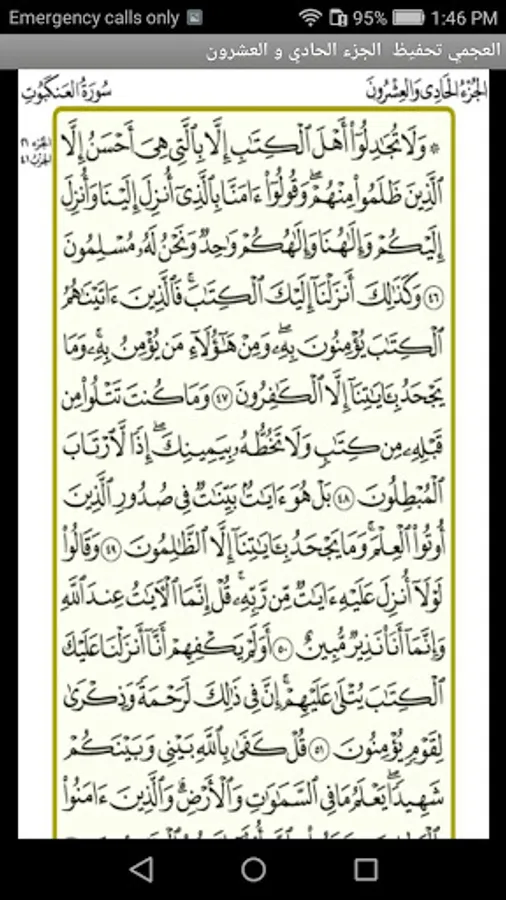 Emergency calls only 95% 1:46 PM
العجمي تحفيظ الجزء الحادي و العشرون
الجُزْءُ الحَادِى وَالعِشْرُونَ سُورَةُ العَنكَبُوتِ
الجزء ٢١
الحزب ٤١
۞ وَلَا تُجَٰدِلُوٓا۟ أَهْلَ ٱلْكِتَٰبِ إِلَّا بِٱلَّتِى هِىَ أَحْسَنُ إِلَّا
ٱلَّذِينَ ظَلَمُوا۟ مِنْهُمْ ۖ وَقُولُوٓا۟ ءَامَنَّا بِٱلَّذِىٓ أُنزِلَ إِلَيْنَا وَأُنزِلَ
إِلَيْكُمْ وَإِلَٰهُنَا وَإِلَٰهُكُمْ وَٰحِدٌ وَنَحْنُ لَهُۥ مُسْلِمُونَ
٤٦ وَكَذَٰلِكَ أَنزَلْنَآ إِلَيْكَ ٱلْكِتَٰبَ ۚ فَٱلَّذِينَ ءَاتَيْنَٰهُمُ
ٱلْكِتَٰبَ يُؤْمِنُونَ بِهِۦ ۖ وَمِنْ هَٰٓؤُلَآءِ مَن يُؤْمِنُ بِهِۦ ۚ وَمَا
يَجْحَدُ بِـَٔايَٰتِنَآ إِلَّا ٱلْكَٰفِرُونَ ٤٧ وَمَا كُنتَ تَتْلُوا۟ مِن
قَبْلِهِۦ مِن كِتَٰبٍ وَلَا تَخُطُّهُۥ بِيَمِينِكَ ۖ إِذًا لَّٱرْتَابَ
ٱلْمُبْطِلُونَ ٤٨ بَلْ هُوَ ءَايَٰتٌۢ بَيِّنَٰتٌ فِى صُدُورِ ٱلَّذِينَ
أُوتُوا۟ ٱلْعِلْمَ ۚ وَمَا يَجْحَدُ بِـَٔايَٰتِنَآ إِلَّا ٱلظَّٰلِمُونَ ٤٩ وَقَالُوا۟
لَوْلَآ أُنزِلَ عَلَيْهِ ءَايَٰتٌ مِّن رَّبِّهِۦ ۖ قُلْ إِنَّمَا ٱلْءَايَٰتُ عِندَ ٱللَّهِ
وَإِنَّمَآ أَنَا۠ نَذِيرٌ مُّبِينٌ ٥٠ أَوَلَمْ يَكْفِهِمْ أَنَّآ أَنزَلْنَا عَلَيْكَ
ٱلْكِتَٰبَ يُتْلَىٰ عَلَيْهِمْ ۚ إِنَّ فِى ذَٰلِكَ لَرَحْمَةً وَذِكْرَىٰ
لِقَوْمٍ يُؤْمِنُونَ ٥١ قُلْ كَفَىٰ بِٱللَّهِ بَيْنِى وَبَيْنَكُمْ
شَهِيدًا ۖ يَعْلَمُ مَا فِى ٱلسَّمَٰوَٰتِ وَٱلْأَرْضِ ۗ وَٱلَّذِينَ ءَامَنُوا۟